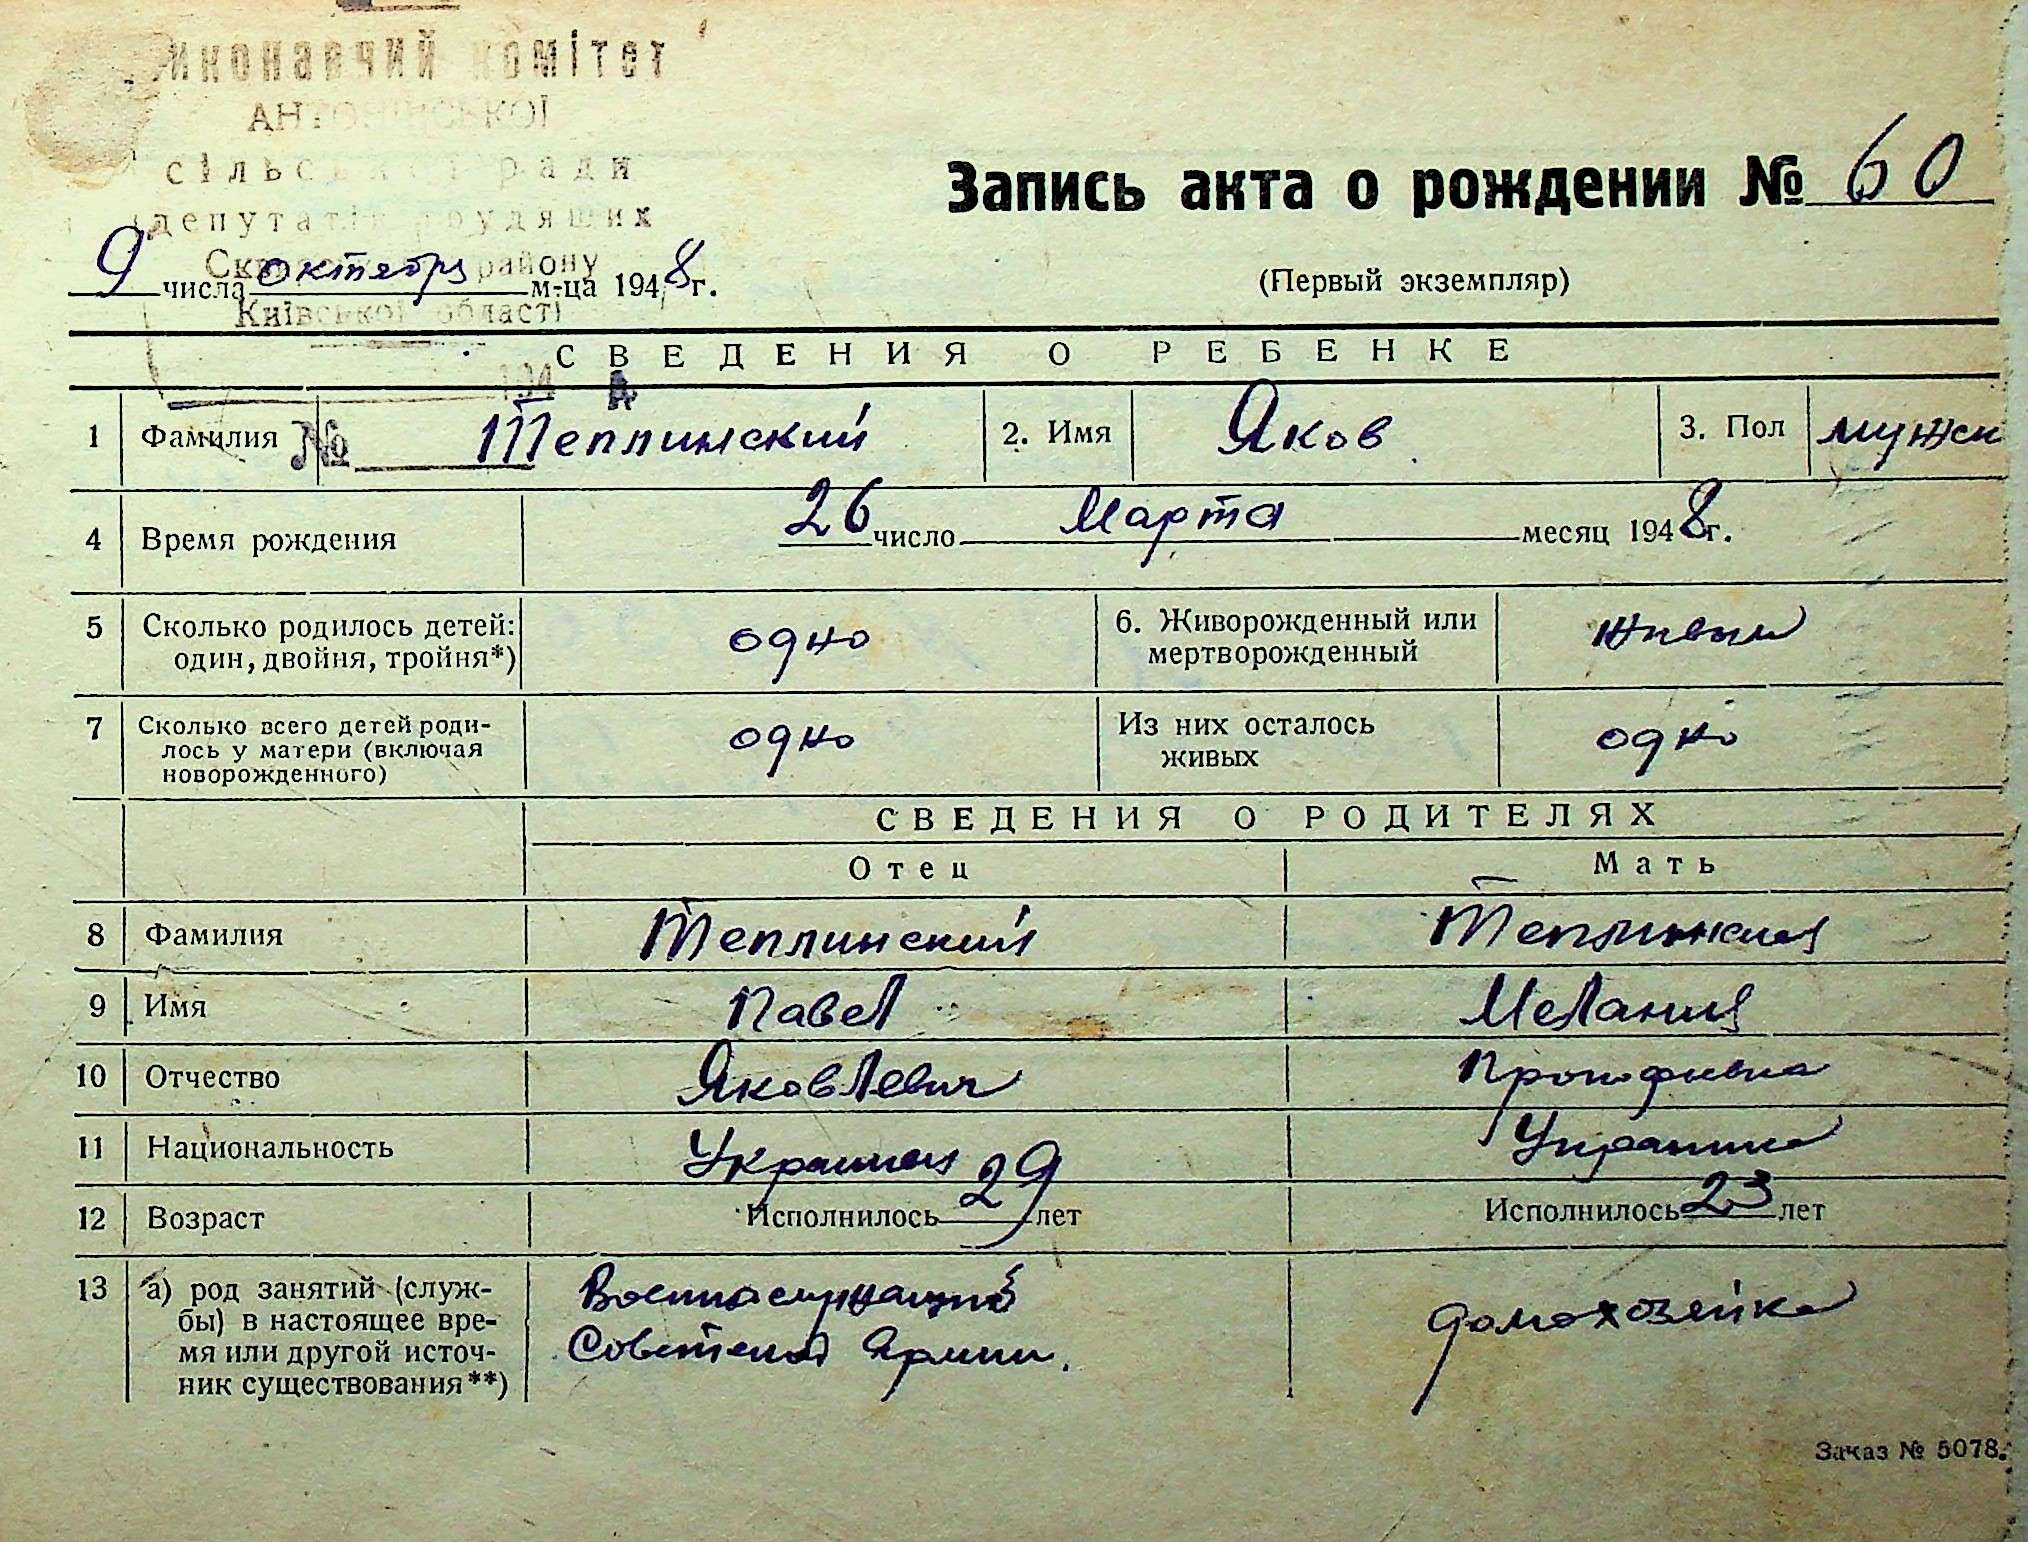 иконавчий комітет
АНТОНІВСЬКОЇ
сільської ради
депутатів трудящих
району
Київської області
194
№
Запись акта о рождении № 60
(Первый экземпляр)
9 числа октября м-ца 1948г.
СВЕДЕНИЯ О РЕБЕНКЕ
1 Фамилия Теплинский 2. Имя Яков 3. Пол мужск
4 Время рождения 26 число Марта месяц 1948г.
5 Сколько родилось детей: один, двойня, тройня*) одно 6. Живорожденный или мертворожденный живым
7 Сколько всего детей роди-
лось у матери (включая новорожденного) одно Из них осталось живых одно
СВЕДЕНИЯ О РОДИТЕЛЯХ
Отец Мать
8 Фамилия Теплинский Теплинская
9 Имя Павел Мелания
10 Отчество Яковлевич Прокофивна
11 Национальность Украинец Украинка
12 Возраст Исполнилось 29 лет Исполнилось 23 лет
13 а) род занятий (служ-
бы) в настоящее вре-
мя или другой источ-
ник существования**)
Военнослужащий
Советской Армии.
домохозяйка
Заказ № 5078.